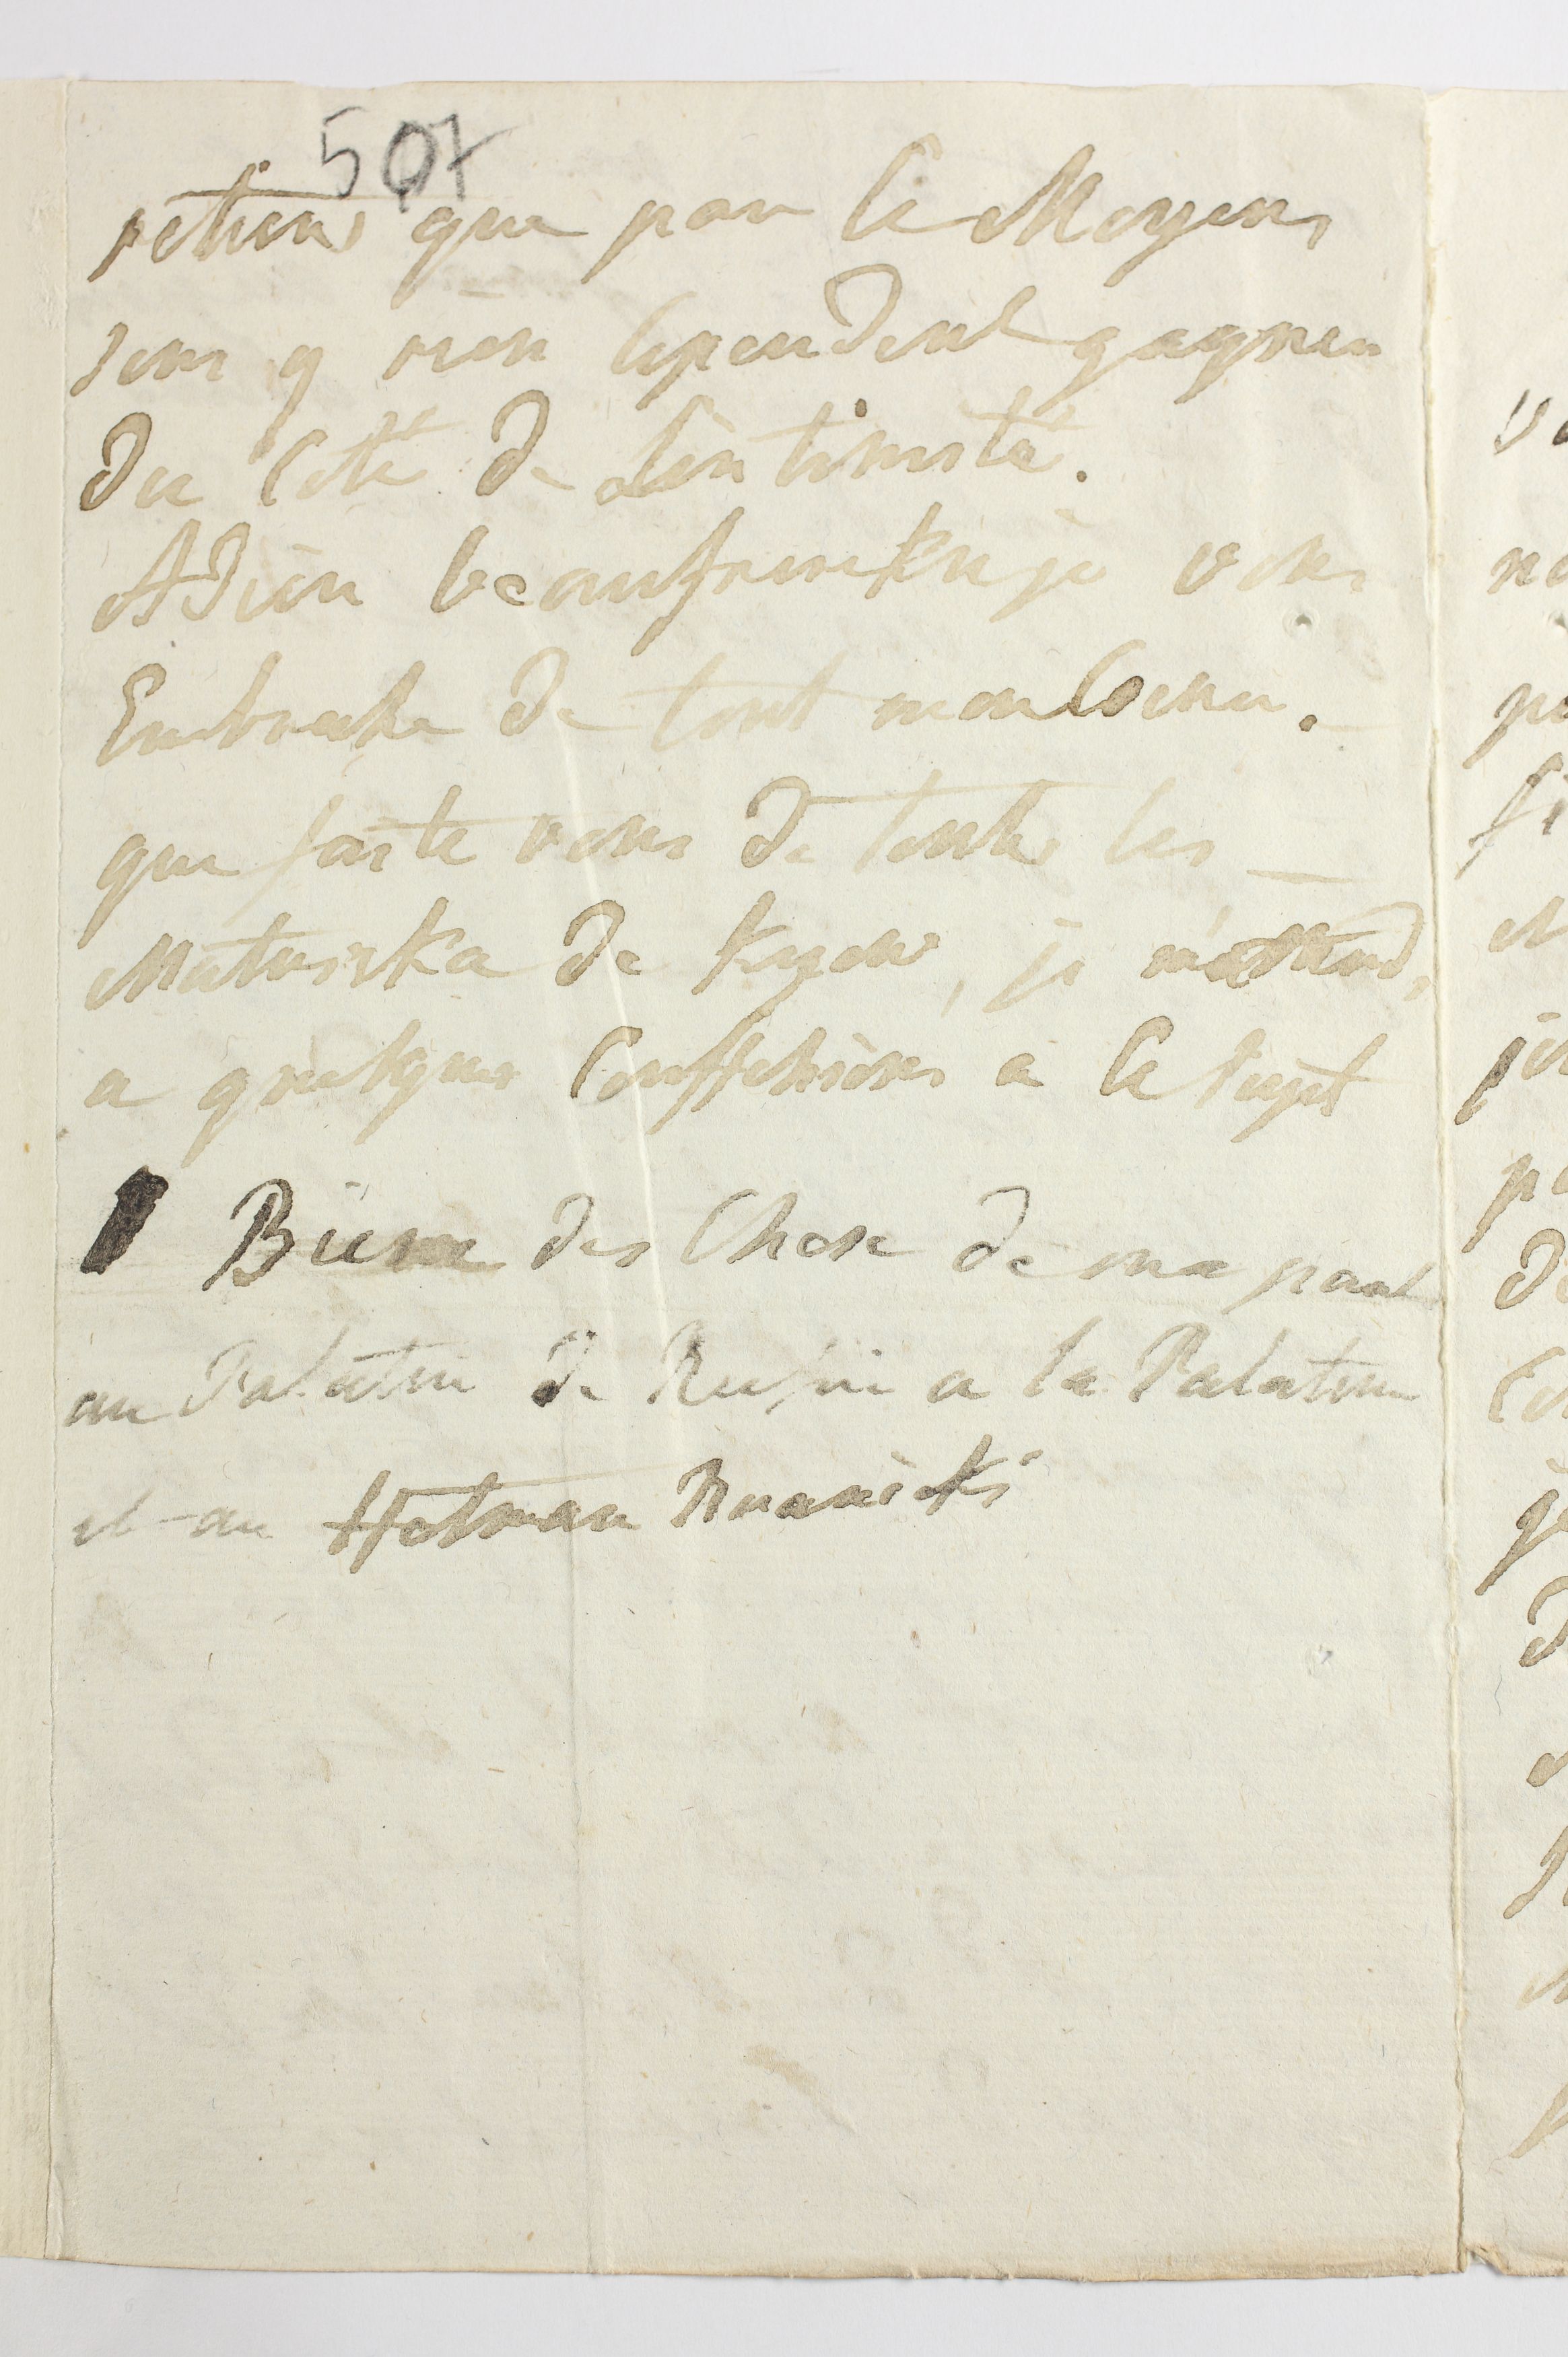 507
que par ce Moyen
sens y rien cependent gagner
du Coté de Lintimité.
Adieu beaufrerku je vous
Embrache de tout mon Coeur.
que faite vous de toute les
Matuszka de Kyow, je m'attend,
a quelque Conffehsions a ce sujet
Bien des Chose de ma part
au Palatin de Russie a la Palatine
et au Hetman Branicki